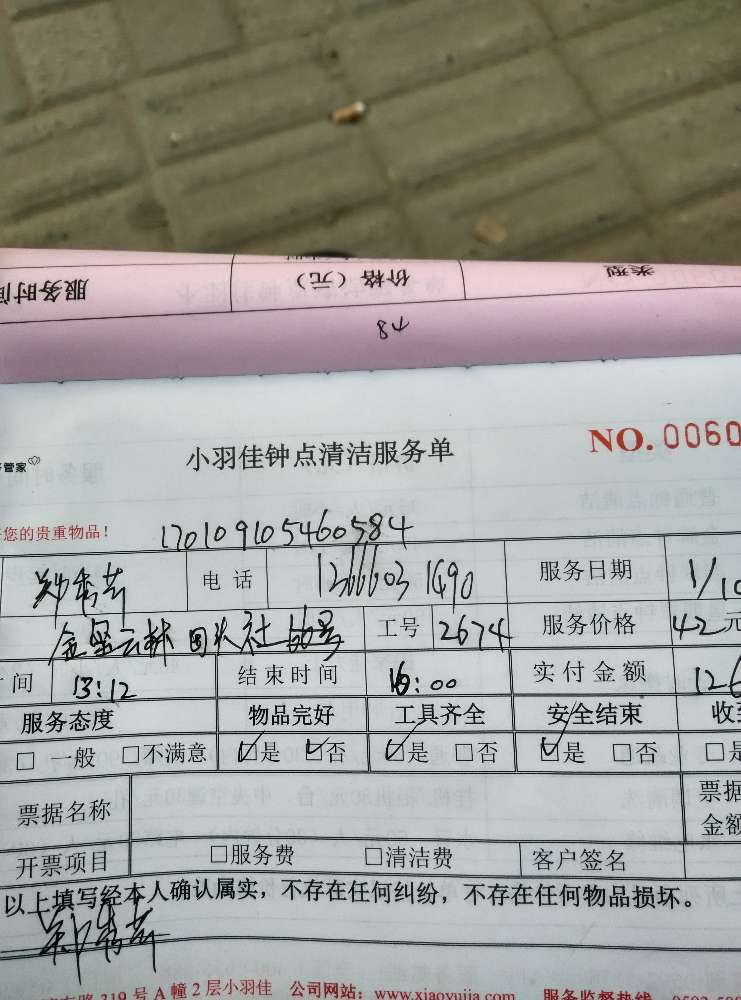 服务时间 价格（元） 类型
84
管家
小羽佳钟点清洁服务单 NO.0060
您的贵重物品！ 170109105460584
电话 服务日期 1/10
工号 2674 服务价格 42元
间 13:12 结束时间 16:00 实付金额 126
服务态度 物品完好 工具齐全 安全结束 收到
□一般 □不满意 ☑是 ☑否 ☑是 □否 ☑是 □否 □是
票据名称 票据
金额
开票项目 □服务费 □清洁费 客户签名
以上填写经本人确认属实，不存在任何纠纷，不存在任何物品损坏。
319号A幢2层小羽佳 公司网站：www.xiaoyujia.com 服务监督热线